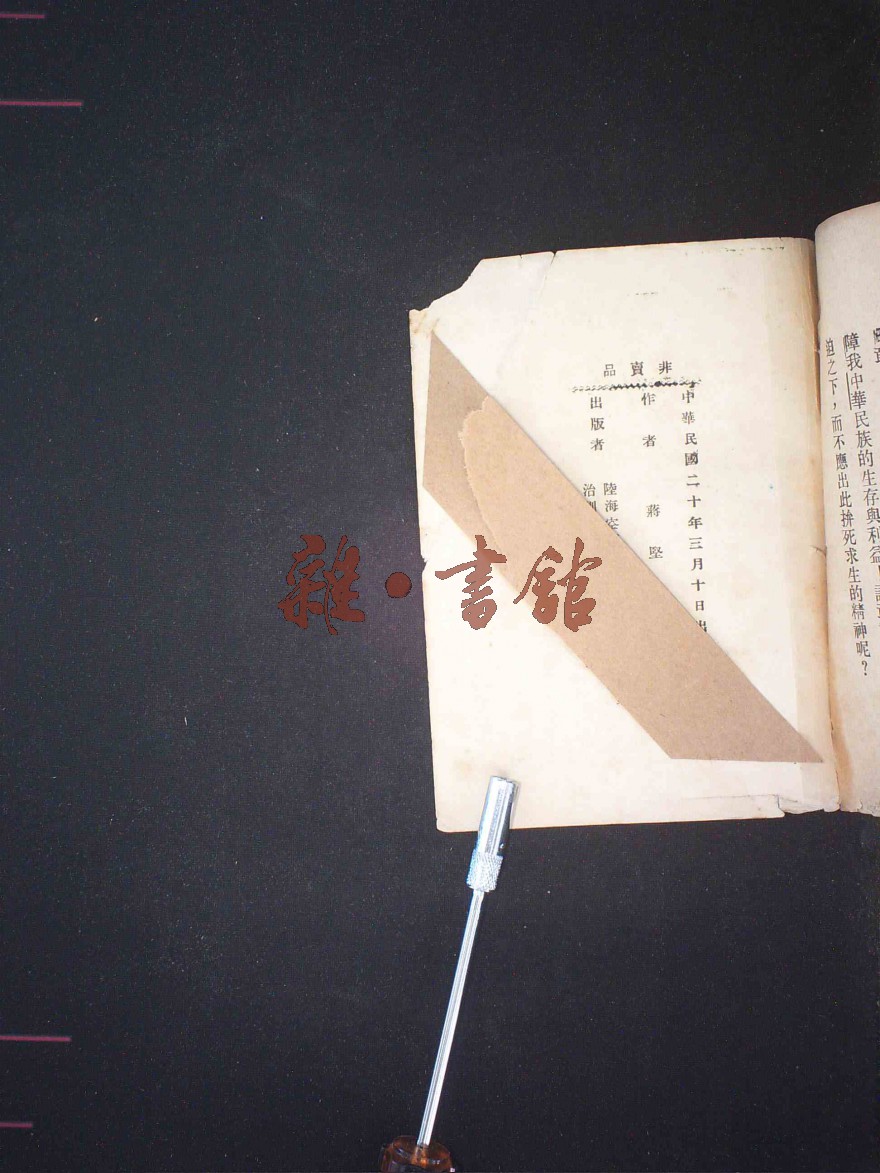 障我中華民族的生存與利益
迫之下，而不應出此拚死求生的精神呢？
非賣品
中華民國二十年三月十日出
作者 蔣堅
出版者 陸海空
治
雜·書館